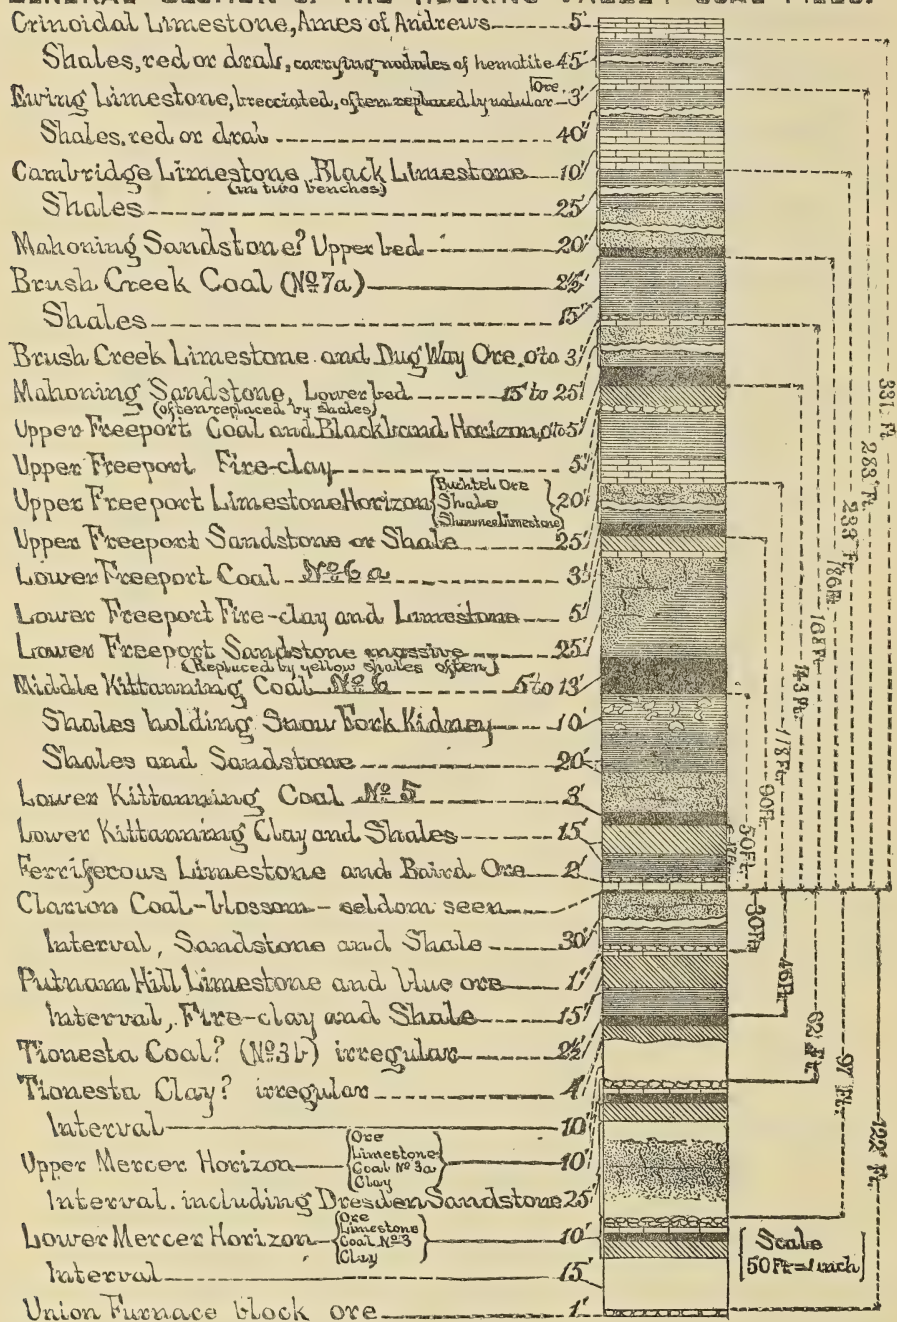 GENERAL SECTION OF THE HOCKING VALLEY COAL FIELD.
Crinoidal Limestone, Ames of Andrews 5'
Shales, red or drab, carrying nodules of hematite 45'
Ewing Limestone, brecciated, often replaced by nodular Ore. 3'
Shales, red or drab 40'
Cambridge Limestone Black Limestone 10'
(in two benches)
Shales 25'
Mahoning Sandstone? Upper bed 20'
Brush Creek Coal (No 7a) 2½'
Shales 15'
Brush Creek Limestone and Dug Way Ore. 0 to 3'
Mahoning Sandstone, Lower bed 15 to 25'
(often replaced by shales)
Upper Freeport Coal and Blackband Horizon, 0 to 5'
Upper Freeport Fire-clay 5'
Upper Freeport Limestone Horizon { Buchtel Ore Shale Shawnee Limestone } 20'
Upper Freeport Sandstone or Shale 25'
Lower Freeport Coal No 6a 3'
Lower Freeport Fire-clay and Limestone 5'
Lower Freeport Sandstone massive 25'
(Replaced by yellow shales often)
Middle Kittanning Coal No 6 5 to 13'
Shales holding Snow Fork Kidney 10'
Shales and Sandstone 20'
Lower Kittanning Coal No 5 3'
Lower Kittanning Clay and Shales 15'
Ferriferous Limestone and Baird Ore 2'
Clarion Coal-blossom - seldom seen
Interval, Sandstone and Shale 30'
Putnam Hill Limestone and blue ore 1'
Interval, Fire-clay and Shale 15'
Tionesta Coal? (No 3b) irregular 2½'
Tionesta Clay? irregular 4'
Interval 10'
Upper Mercer Horizon { Ore Limestone Coal No 3a Clay } 10'
Interval. including Dresden Sandstone 25'
Lower Mercer Horizon { Ore Limestone Coal No 3 Clay } 10'
Interval 15'
Union Furnace block ore 1'
331 Ft.
283 Ft.
233 Ft.
186 Ft.
168 Ft.
143 Ft.
118 Ft.
90 Ft.
50 Ft.
30 Ft.
46 Ft.
62 Ft.
97 Ft.
122 Ft.
Scale
50 Ft = 1 inch